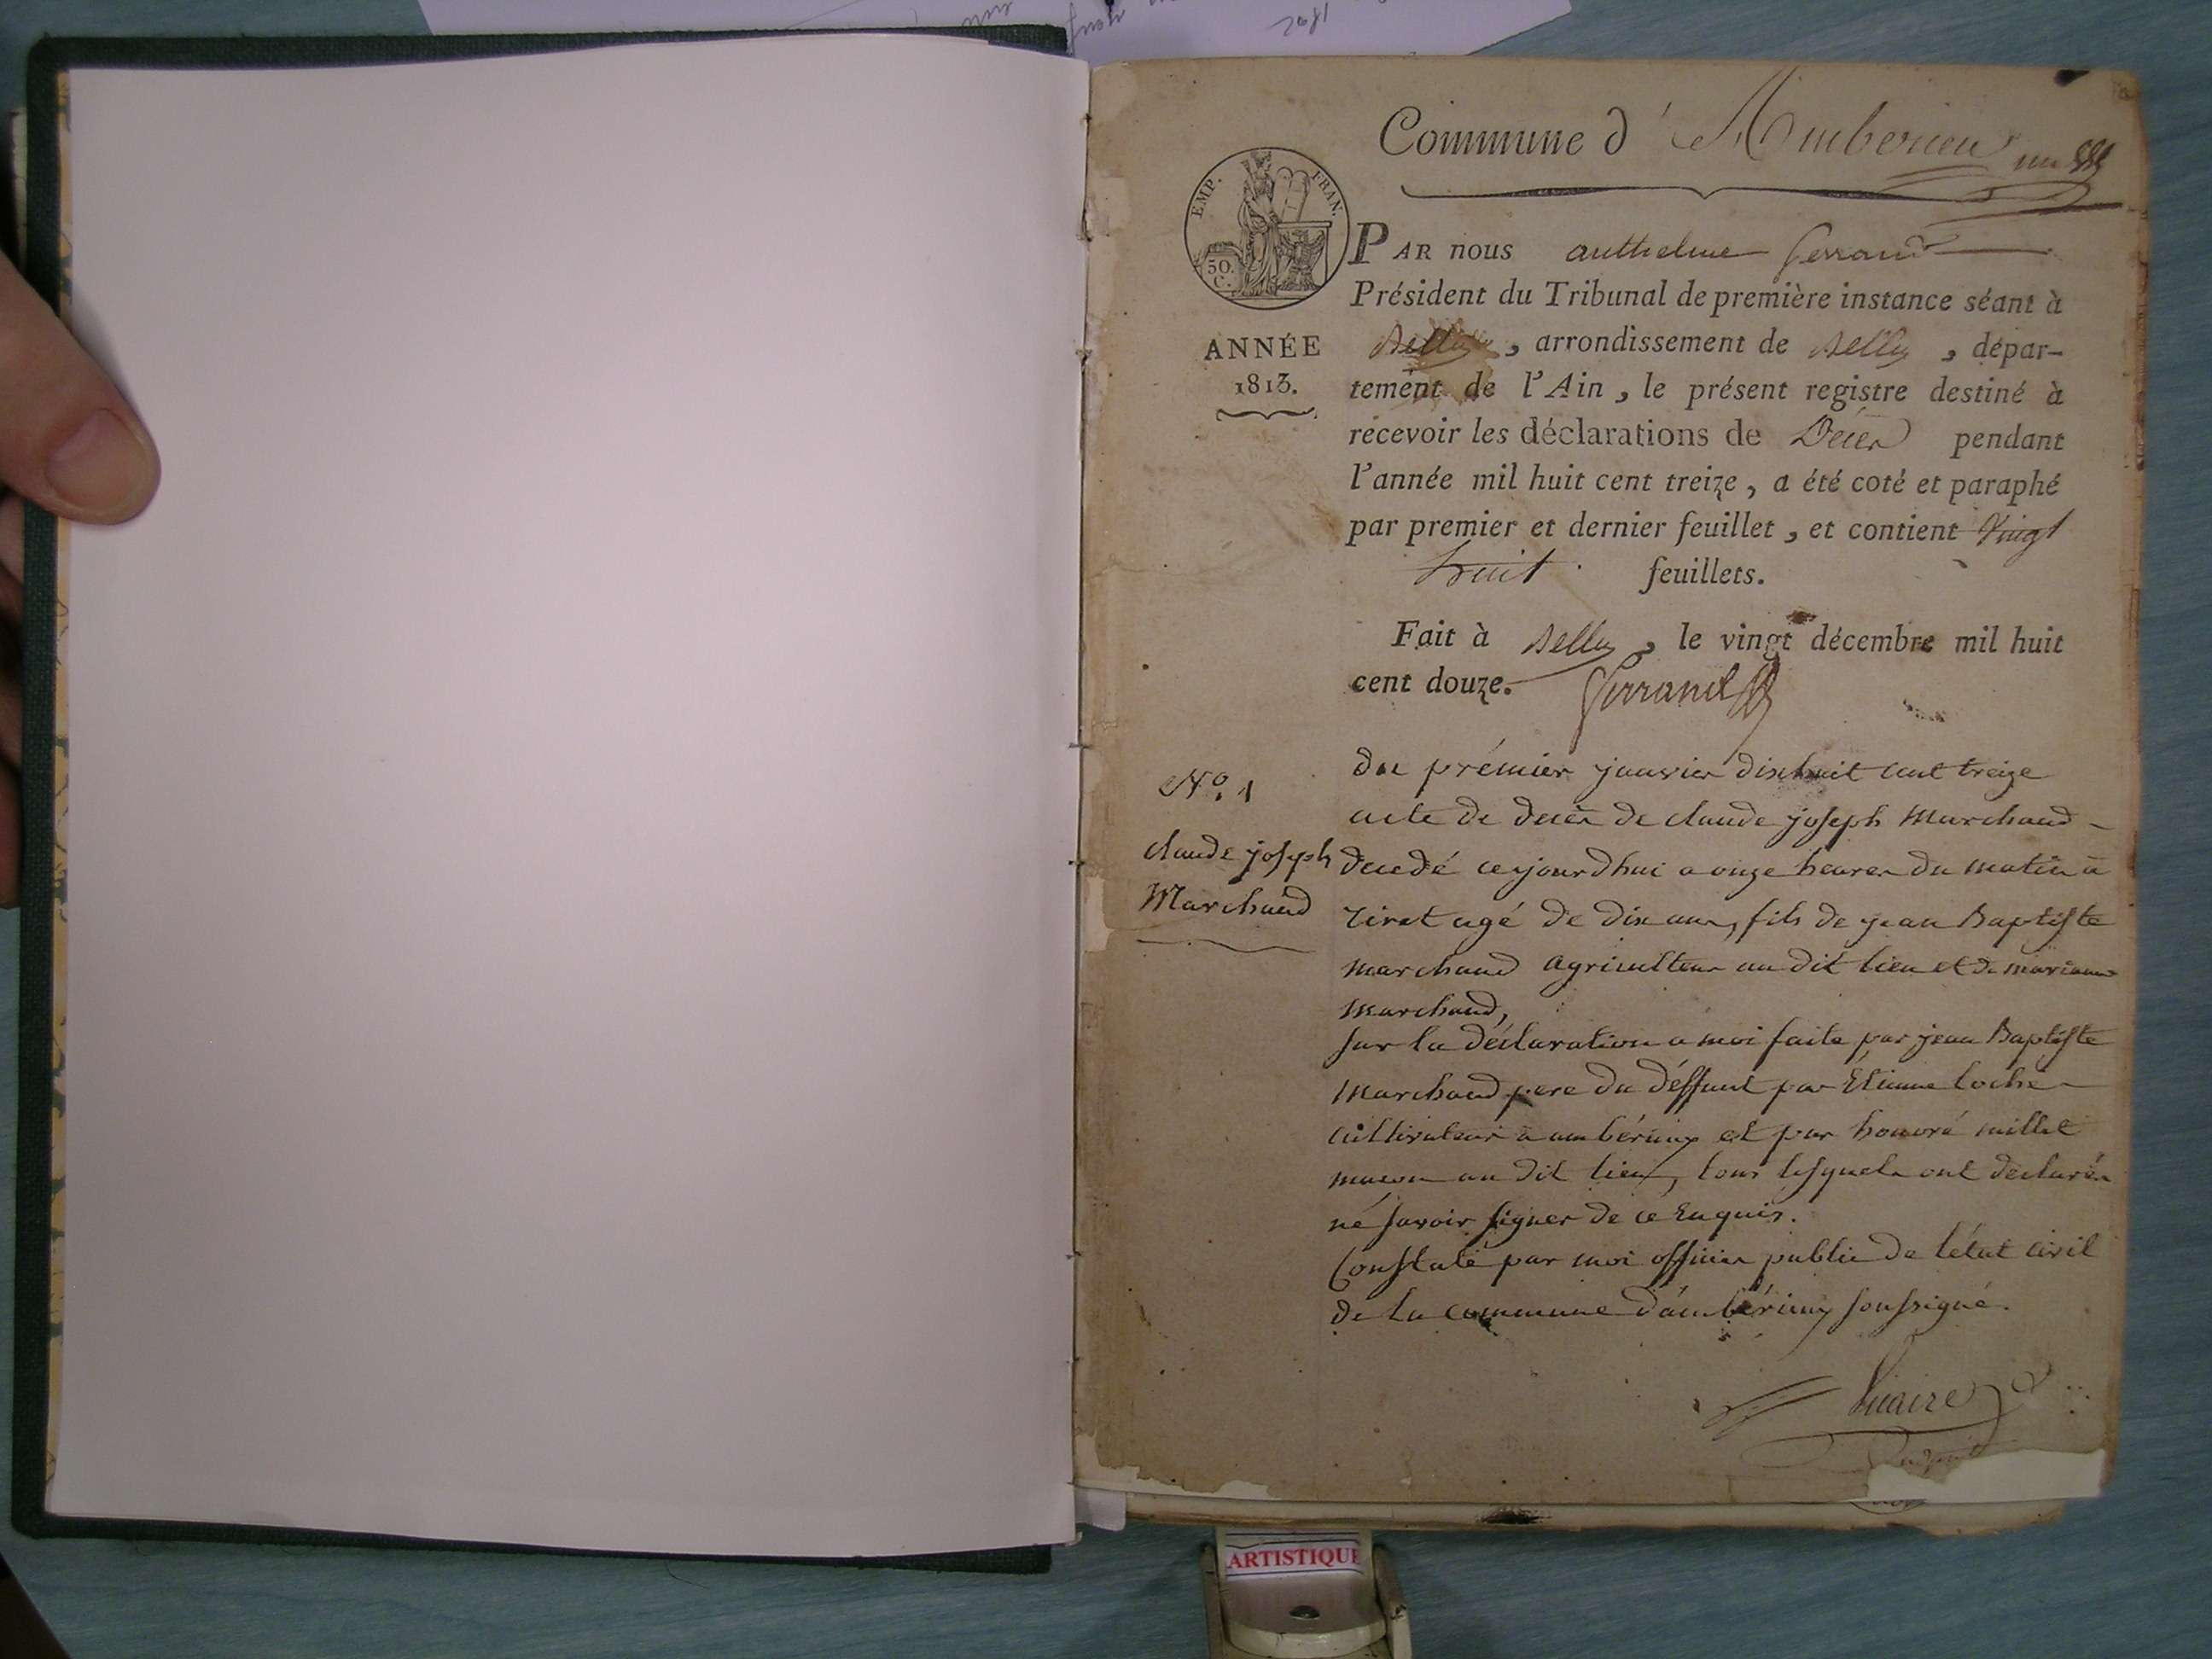 Commune d'Amberieu
un
EMP. FRAN.
50.
C.
ANNÉE
1813.
PAR nous anthelme ferrand
Président du Tribunal de première instance séant à
Belley, arrondissement de Belley, dépar-
tement de l'Ain, le présent registre destiné à
recevoir les déclarations de Décès pendant
l'année mil huit cent treize, a été coté et paraphé
par premier et dernier feuillet, et contient Vingt
huit feuillets.
Fait à Belley, le vingt décembre mil huit
cent douze. ferrand
No. 1
claude joseph
Marchand
du prémier janvier dixhuit cent treize
acte de decès de claude joseph Marchand
decedé cejourdhui a onze heures du matin à
tiret agé de dix ans, fils de jean Baptiste
marchand agriculteur au dit lieu et de mariane
marchand,
sur la déclaration a moi faite par jean Baptiste
marchand pere du déffunt par Etienne loché
cultivateur à ambérieux et par honoré millet
macon au dit lieu, tous lesquels ont déclarés
né savoir signer de ce Enquis.
Constaté par moi officier public de létat civil
de la commune d'ambérieux soussigné.
ARTISTIQUE